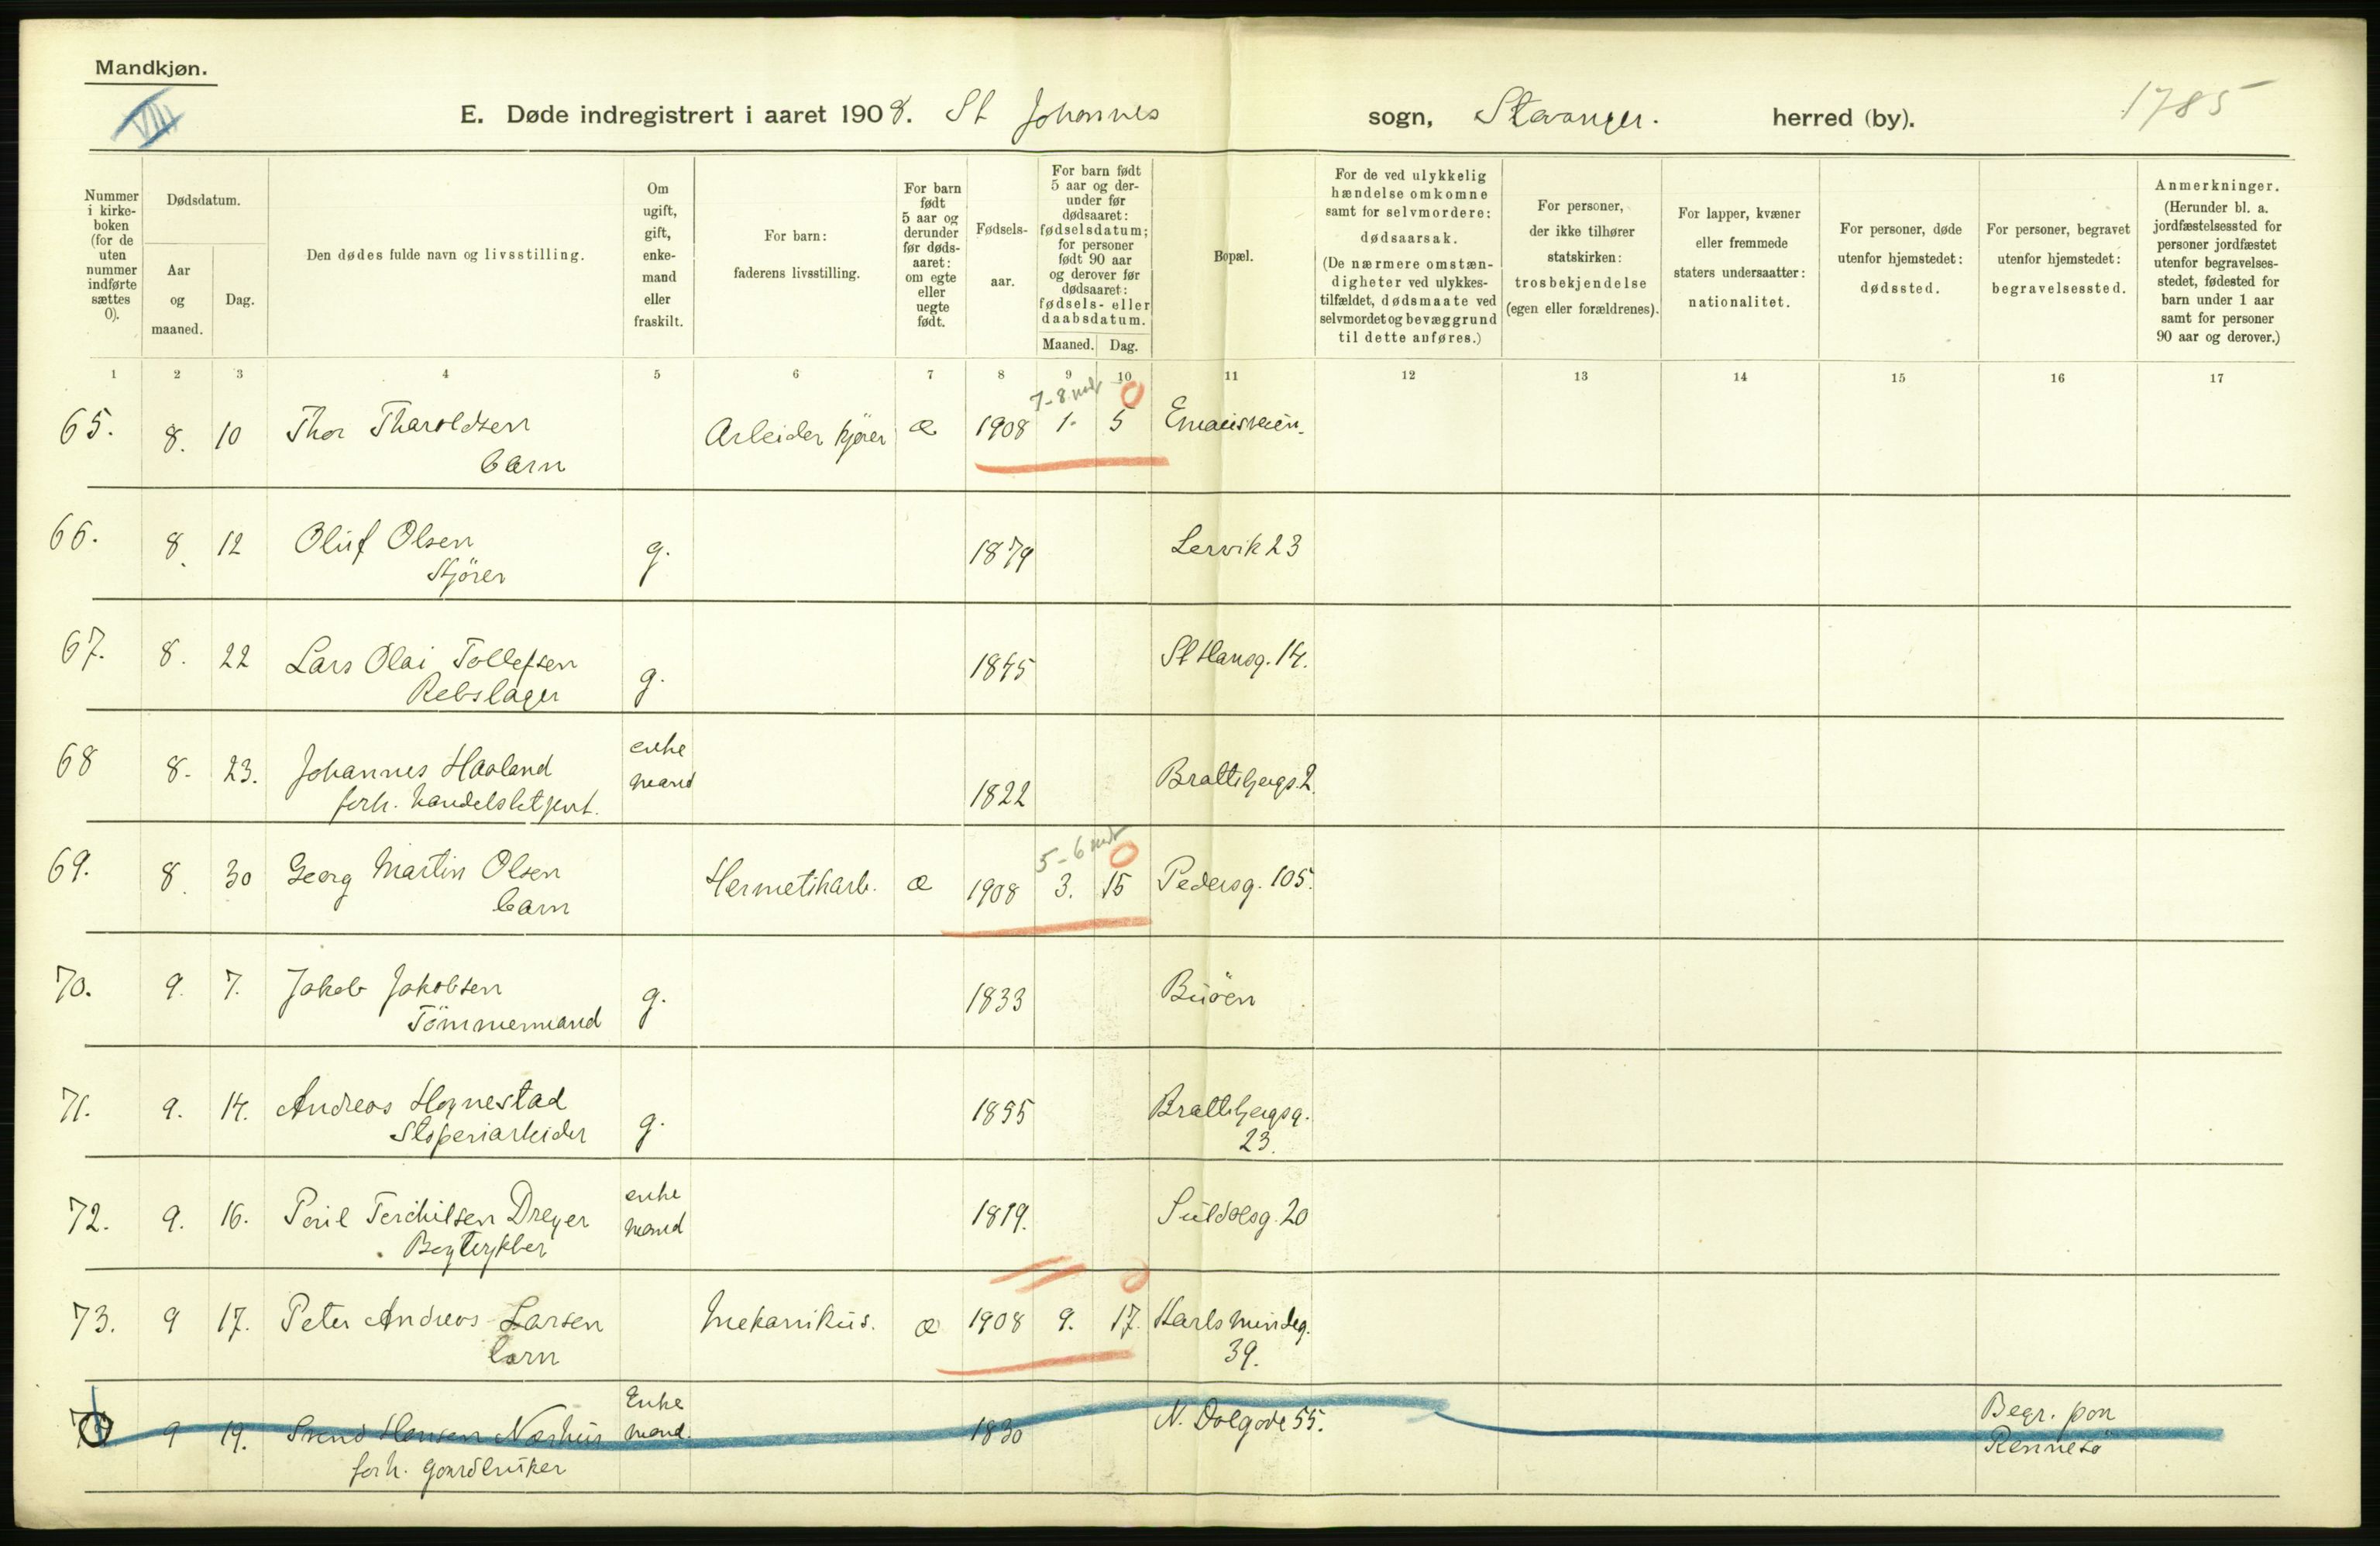 Mandkjøn.
VIII
E. Døde indregistrert i aaret 1908. St Johannes sogn, Stavanger. herred (by).
1785
Nummer i kirke-boken (for de uten nummer indførte sættes 0).
Dødsdatum.
Aar og maaned.
Dag.
Den dødes fulde navn og livsstilling.
Om ugift, gift, enke-mand eller fraskilt.
For barn: faderens livsstilling.
For barn født 5 aar og derunder før døds-aaret: om egte eller uegte født.
Fødsels-aar.
For barn født 5 aar og der-under før dødsaaret: fødselsdatum; for personer født 90 aar og derover før dødsaaret: fødsels- eller daabsdatum.
Maaned. Dag.
Bopæl.
For de ved ulykkelig hændelse omkomne samt for selvmordere: dødsaarsak. (De nærmere omstæn-digheter ved ulykkes-tilfældet, dødsmaate ved selvmordet og bevæggrund til dette anføres.)
For personer, der ikke tilhører statskirken: trosbekjendelse (egen eller forældrenes).
For lapper, kvæner eller fremmede staters undersaatter: nationalitet.
For personer, døde utenfor hjemstedet: dødssted.
For personer, begravet utenfor hjemstedet: begravelsessted.
Anmerkninger. (Herunder bl. a. jordfæstelsessted for personer jordfæstet utenfor begravelses-stedet, fødested for barn under 1 aar samt for personer 90 aar og derover.)
1 2 3 4 5 6 7 8 9 10 11 12 13 14 15 16 17
7-8 mdr 0
65. 8. 10 Thor Tharoldsen Arbeider kjører æ 1908 1. 5 Emausveien.
barn
66. 8. 12 Oluf Olsen g. 1879 Lervik 23
Kjører
67. 8. 22 Lars Olai Tollefsen g. 1845 St Hansg. 14.
Rebslager
68 8. 23. Johannes Haaland enke mand 1822 Brattebergs. 2.
forh. handelsbetjent.
5-6 mdr 0
69. 8. 30 Georg Martin Olsen Hermetikarb. æ 1908 3. 15 Pedersg. 105.
barn
70. 9. 7. Jakob Jakobsen g. 1833 Buöen
Tömmermand
71. 9. 14. Andreas Hognestad g. 1855 Brattebergsg.
Støperiarbeider 23.
72. 9. 16. Poul Terchilsen Dreyer enke mand 1819. Suldalsg. 20
Bogtrykker
0
73. 9 17. Peter Andreas Larsen Mekanikus. æ 1908 9. 17. Karlsmindeg.
barn 39.
0 9 19. Svend Hansen Nærhus Enke mand. 1830 N. Dalgade 55. Begr. paa
forh. gaardbruker Rennesö